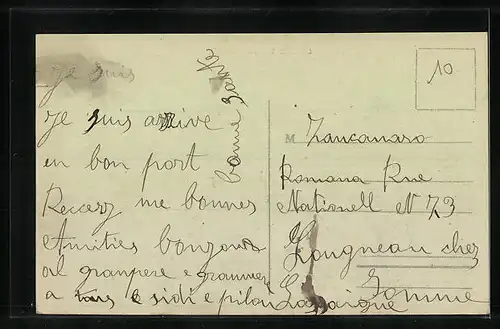 Je suis
Je suis arrive
en bon port
Recevz me bonnes
Amities bonjour
al granpere e granmer
a tous e sidi e
bonne
10
M Zancanaro
Romana Rue
Nationell N 73
Longneau chez
Somme